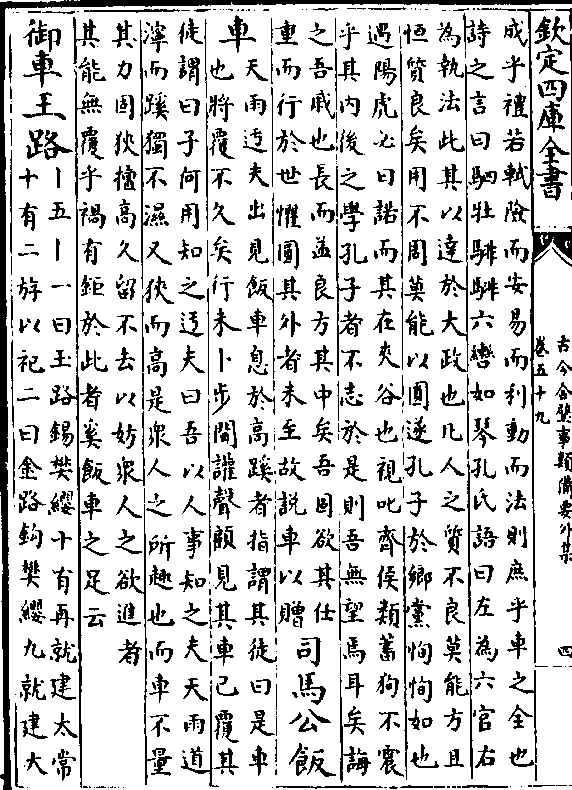 欽定四庫全書
古今合璧事類備要外集
卷五十九
四
成乎禮若軾險而安易而利動而法則庶乎車之全也
詩之言曰駟牡騑騑六轡如琴孔氏語曰左為六官右
為執法此其以達於大政也凡人之質不良莫能方且
恒質良矣用不周莫能以圓遂孔子於鄉黨恂恂如也
遇陽虎必曰諾而其在夾谷也視叱齊侯類蓄狗不震
乎其內後之學孔子者不志於是則吾無望焉耳矣誨
之吾戚也長而益良方其中矣吾固欲其仕
重而行於世懼圓其外者未至故說車以贈
司馬公飯
車
天雨迂夫出見飯車息於高蹊者指謂其徒曰是車
也將覆不久矣行未卜步聞讙聲顧見其車已覆其
徒謂曰子何用知之迂夫曰吾以人事知之夫天雨道
濘而蹊獨不濕又狹而高是衆人之所趣也而車不量
其力固狹擅高久留不去以妨衆人之欲進者
其能無覆乎禍有鉅於此者奚飯車之足云
御車王路
丨五丨一曰玉路錫樊纓十有再就建太常
十有二斿以祀二曰金路鈎樊纓九就建大